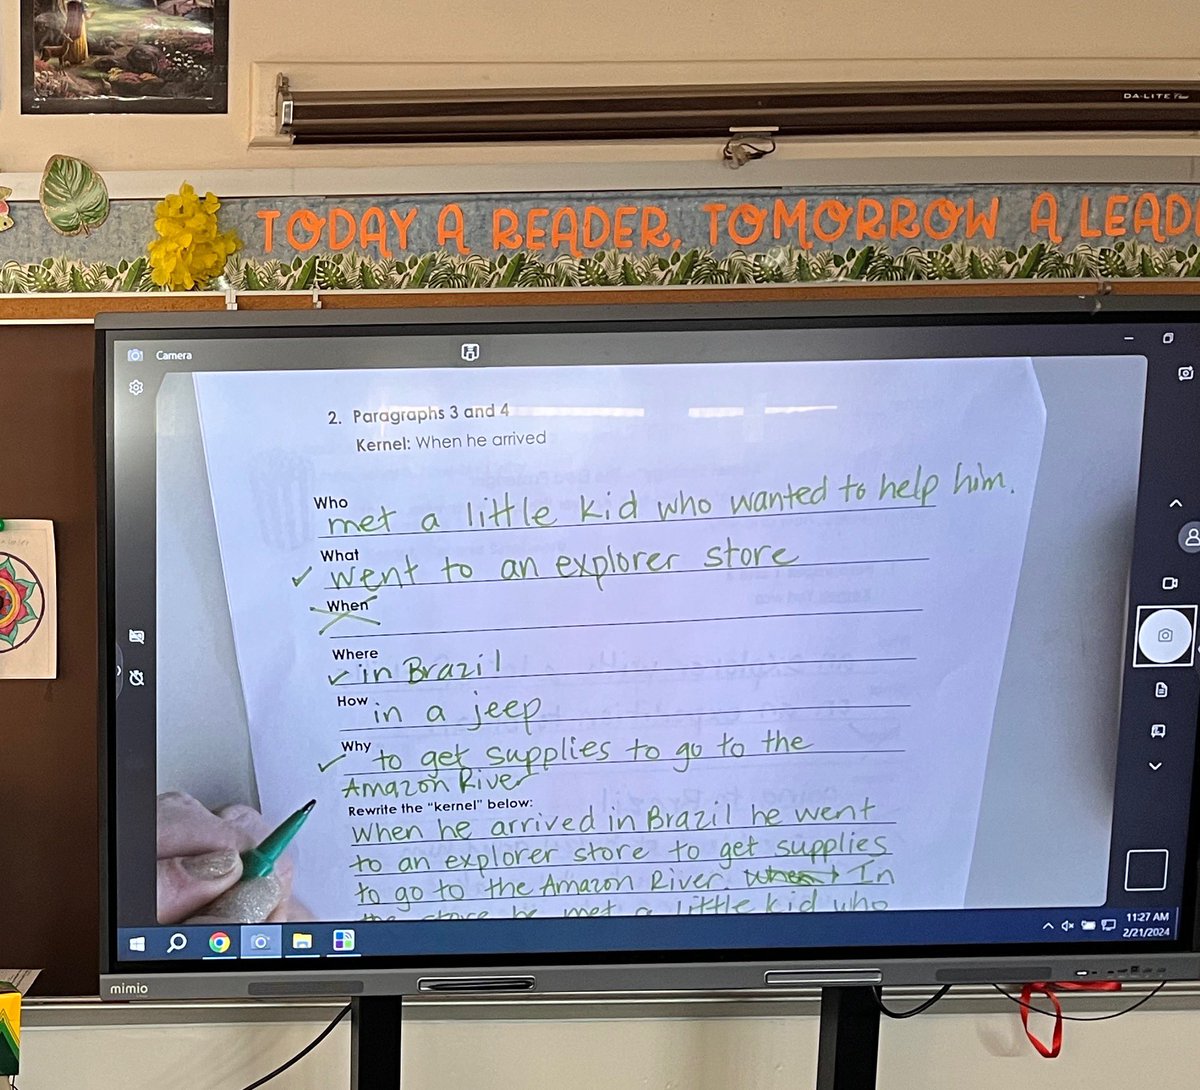 DA-LITE
TODAY A READER, TOMORROW A LEAD
Camera
2. Paragraphs 3 and 4
Kernel: When he arrived
Who
met a little kid who wanted to help him.
What
✓ went to an explorer store
When
Where
✓ in Brazil
How
in a jeep
Why
✓ to get supplies to go to the
Amazon River
Rewrite the "kernel" below:
When he arrived in Brazil he went
to an explorer store to get supplies
to go to the Amazon River. In
the store he met a little kid who
11:27 AM
2/21/2024
mimio